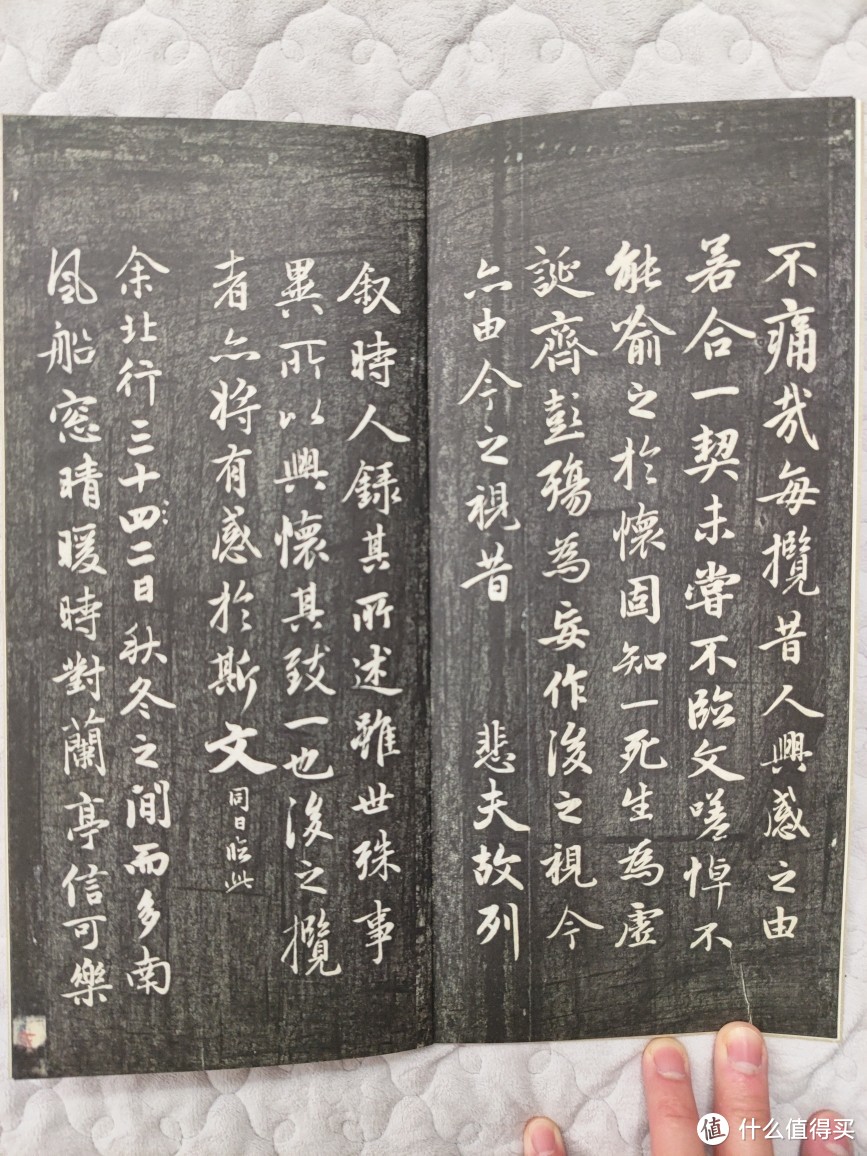 不痛哉每攬昔人興感之由
若合一契未嘗不臨文嗟悼不
能喻之於懷固知一死生為虛
誕齊彭殤為妄作後之視今
亦由今之視昔 悲夫故列
叙時人錄其所述雖世殊事
異所以興懷其致一也後之攬
者亦將有感於斯文 同日臨此
余北行三十四二日秋冬之間而多南
風船窓晴暖時對蘭亭信可樂
值 什么值得买